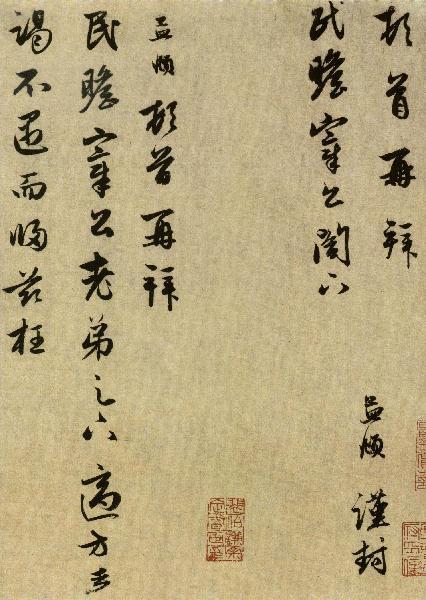 頓首再拜
民瞻宰公閣下
孟頫謹封
孟頫頓首再拜
民瞻宰公老弟足下適方去
謁不遇而歸茲枉